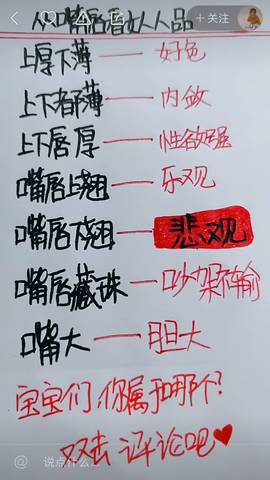 从嘴唇看女人人品
+关注
上厚下薄——好色
上下都薄——内敛
上下唇厚——性欲强
嘴唇上翘——乐观
嘴唇下翘——悲观
嘴唇藏珠——吵架不输
嘴大——胆大
宝宝们,你属于哪个?
双击评论吧♥
@ 说点什么...